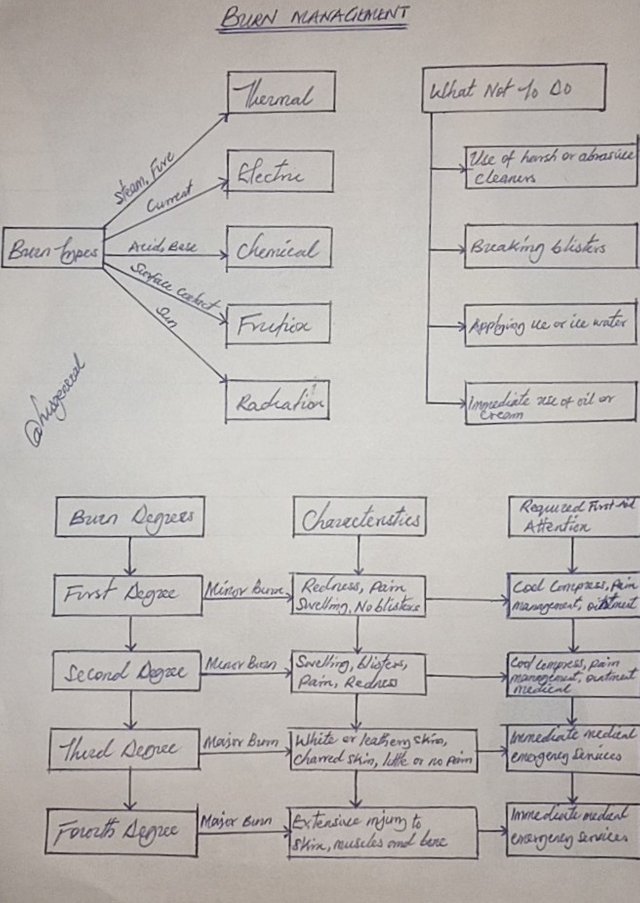 BURN MANAGEMENT
Burn types
Steam, Fire
Thermal
Current
Electric
Acid, Base
Chemical
Surface Contact
Friction
Sun
Radiation
What Not To Do
Use of harsh or abrasive
cleaners
Breaking blisters
Applying ice or ice water
Immediate use of oil or
cream
Burn Degrees
Characteristics
Required First Aid
Attention
First Degree
Minor Burn
Redness, Pain
Swelling, No blisters
Cool Compress, Pain
management, ointment
Second Degree
Minor Burn
Swelling, blisters,
Pain, Redness
Cool Compress, pain
management, ointment
medical
Third Degree
Major Burn
White or leathery skin,
charred skin, little or no pain
Immediate medical
emergency services
Fourth Degree
Major Burn
Extensive injury to
skin, muscles and bone
Immediate medical
emergency services